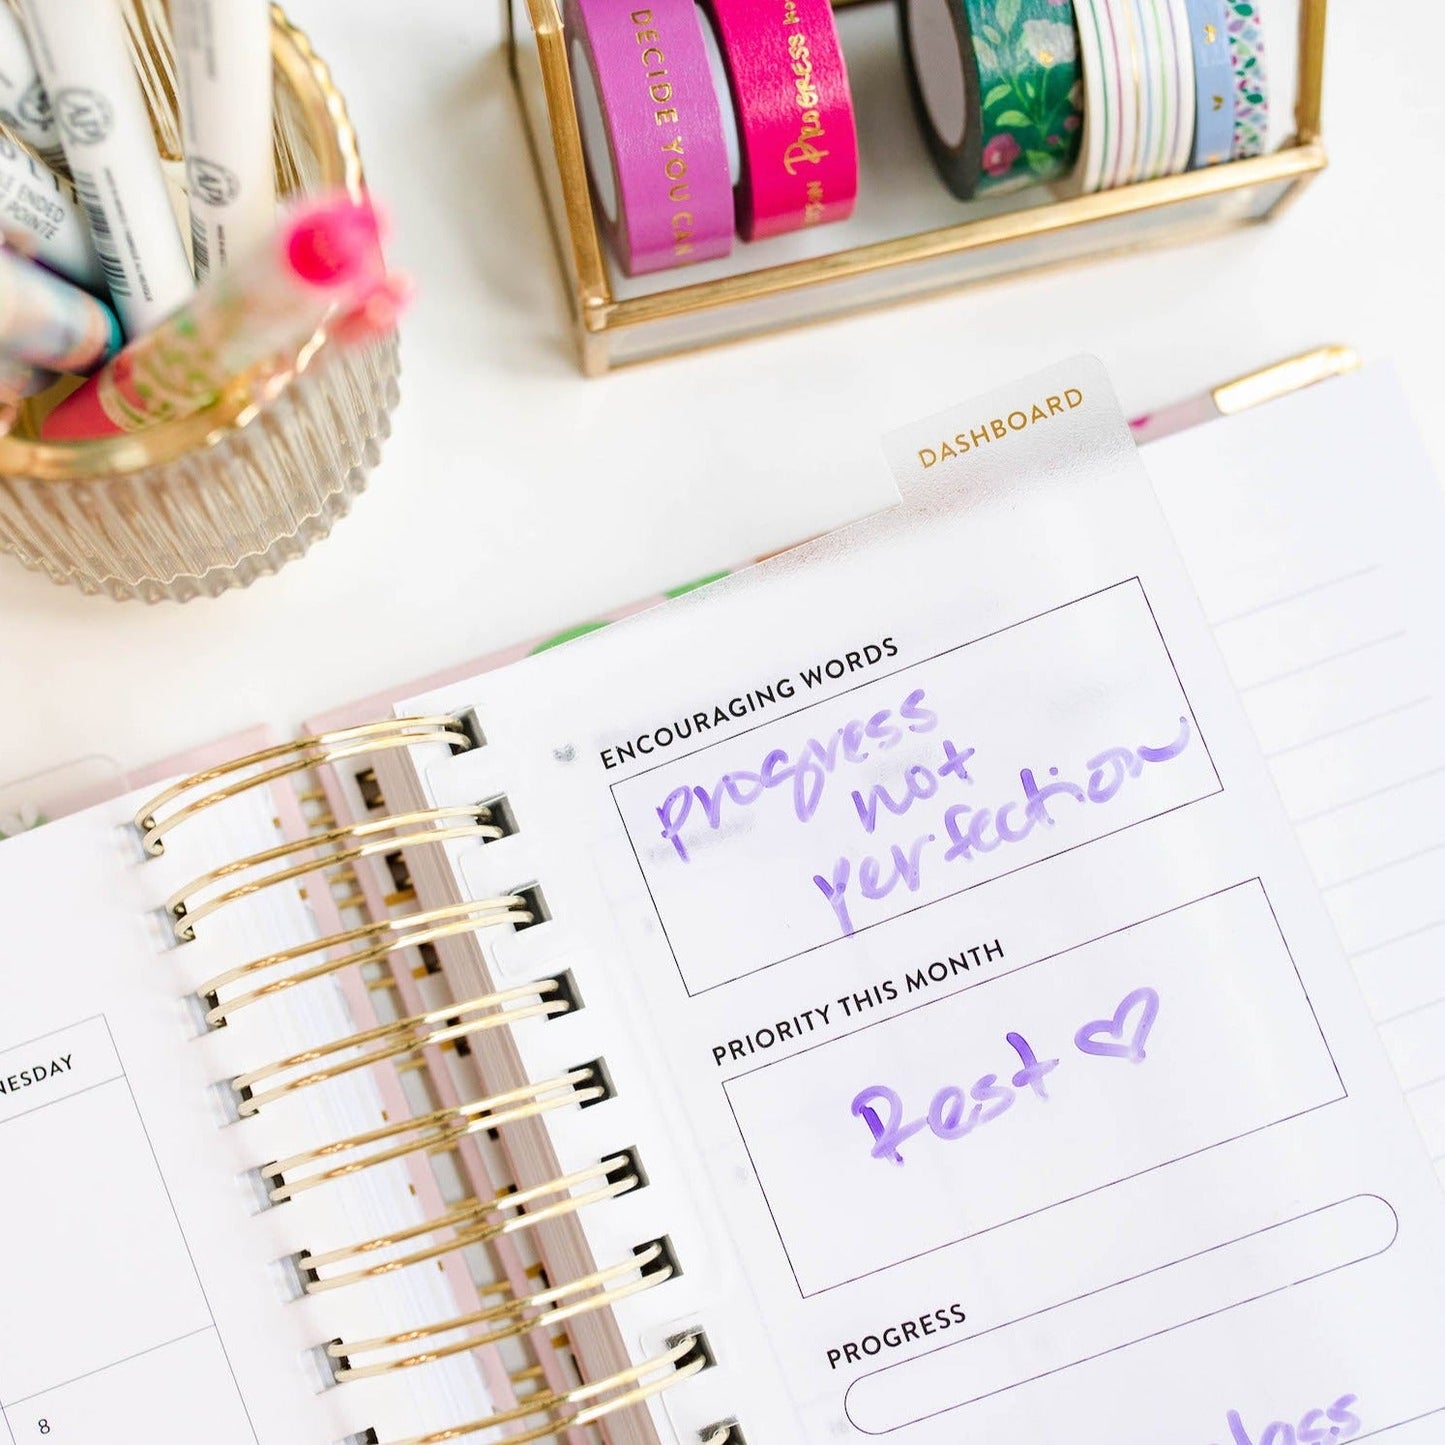 DECIDE YOU CAN
PROGRESS NOT
DASHBOARD
ENCOURAGING WORDS
progress
not
perfection
PRIORITY THIS MONTH
Rest
PROGRESS
NESDAY
8